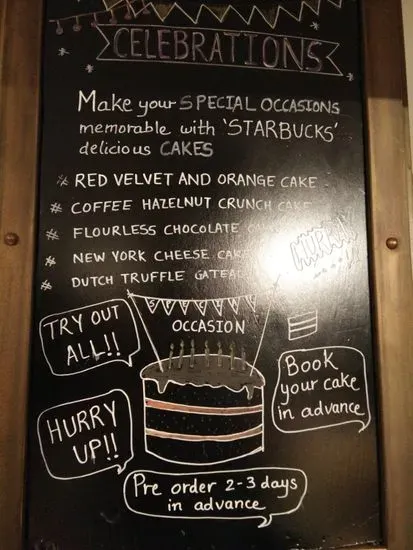 CELEBRATIONS
Make your SPECIAL OCCASIONS
memorable with 'STARBUCKS'
delicious CAKES
* RED VELVET AND ORANGE CAKE
* COFFEE HAZELNUT CRUNCH CAKE
* FLOURLESS CHOCOLATE
* NEW YORK CHEESE CAKE
* DUTCH TRUFFLE GATEAU
HURRY
SPECIAL
OCCASION
TRY OUT
ALL!!
Book
your cake
in advance
HURRY
UP!!
Pre order 2-3 days
in advance